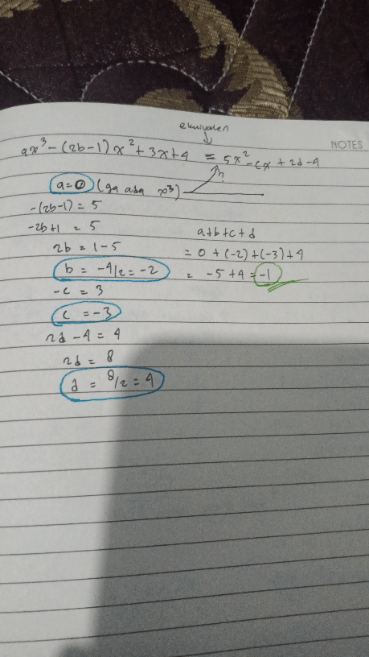 NOTES
ekuivalen
ax³ - (2b-1)x² + 3x + 4 = 5x² - cx + 2d - 4
a = 0 (ga ada x³)
-(2b-1) = 5
-2b+1 = 5
2b = 1-5
b = -4/2 = -2
-c = 3
c = -3
2d - 4 = 4
2d = 8
d = 8/2 = 4
a+b+c+d
= 0 + (-2) + (-3) + 4
= -5+4 = -1